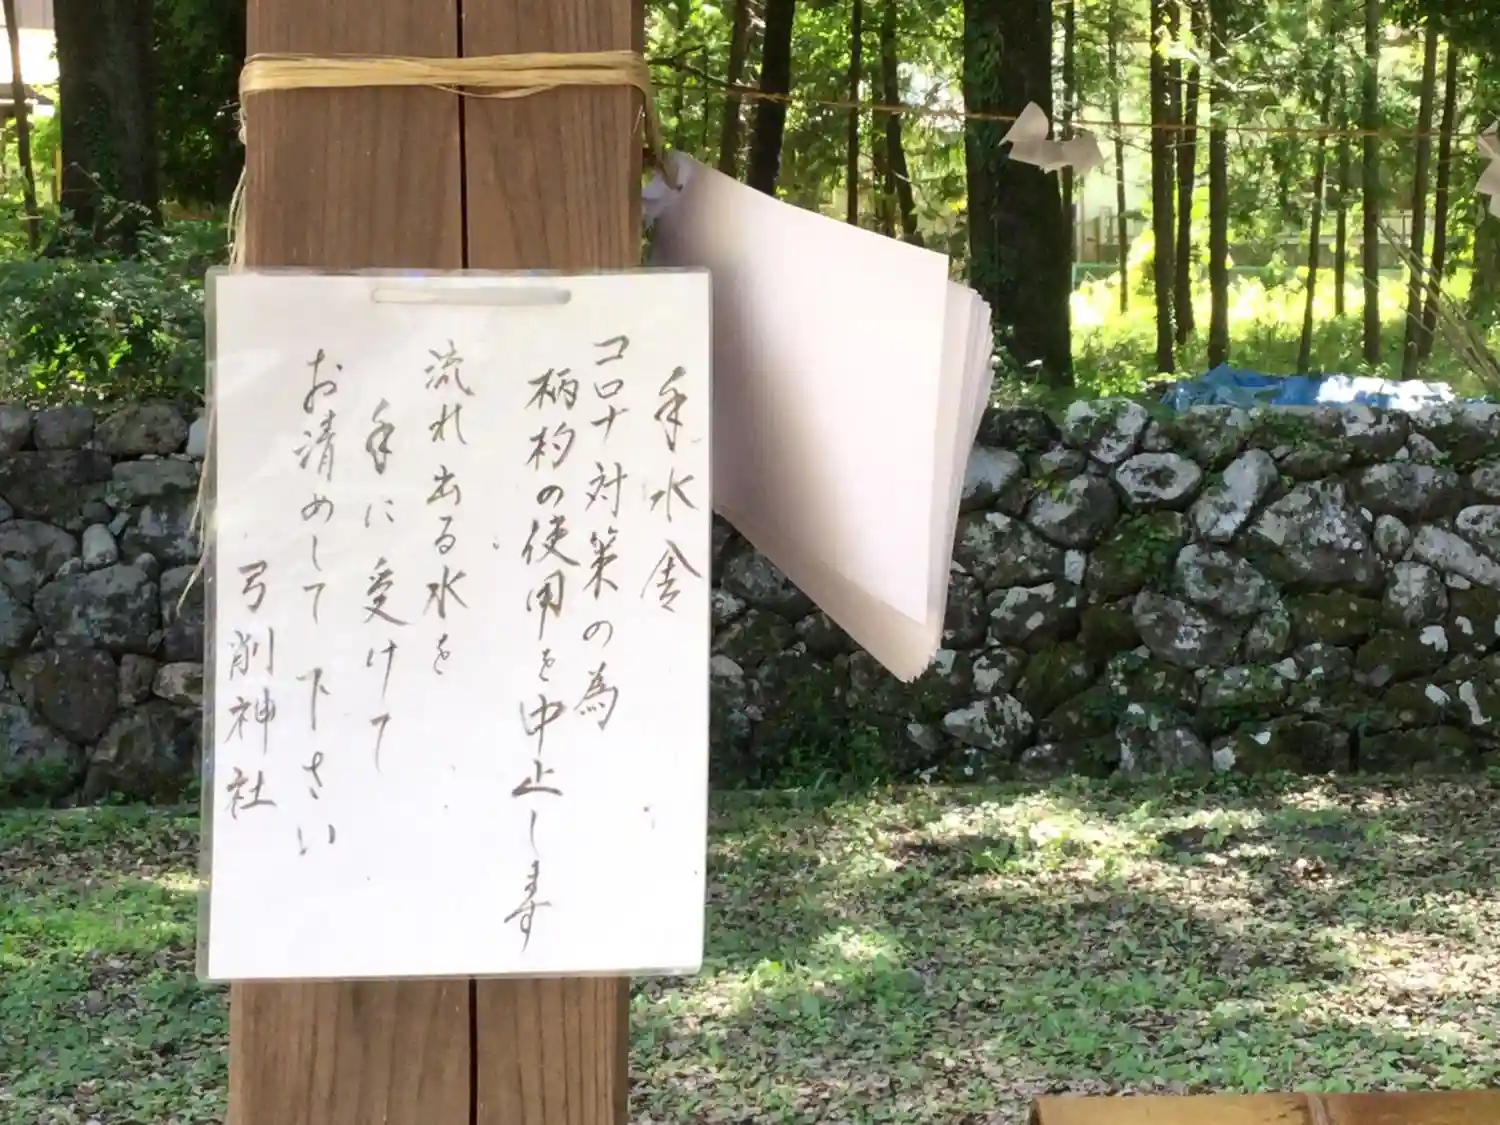 手水舎
コロナ対策の為
柄杓の使用を中止します
流れ出る水を
手に受けて
お清めして下さい
弓削神社